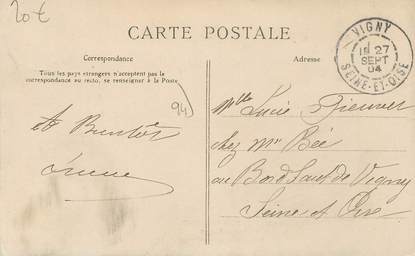 20€
CARTE POSTALE
Correspondance
Adresse
Tous les pays étrangers n'acceptent pas la
correspondance au recto, se renseigner à la Poste
VIGNY
18 27
SEPT
04
SEINE-ET-OISE
94
A Bientôt
Mlle Lucie
chez Mr Bée
au Bord'haut de Vigny
Seine et Oise